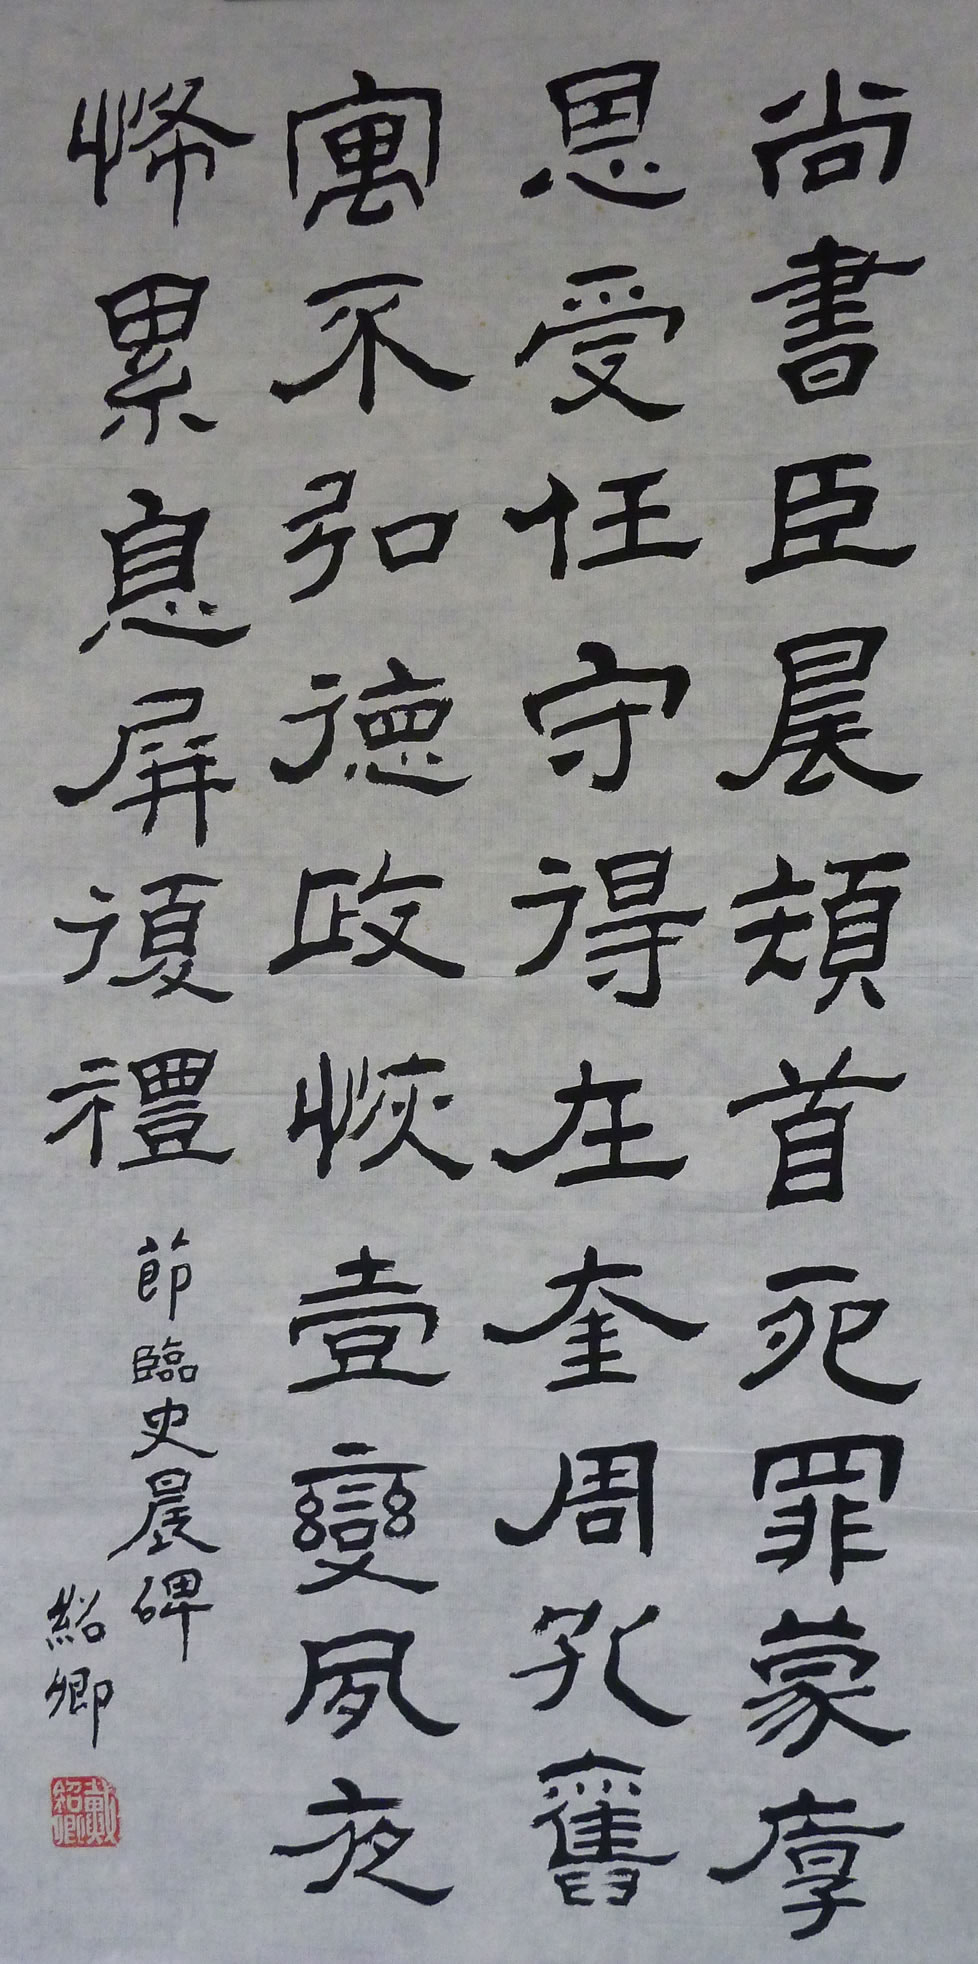 尚書臣晨頓首死罪蒙厚
恩受任守得在奎周孔舊
寓不弘德政恢壹變夙夜
怖累息屏復禮
節臨史晨碑
紹卿
戴紹卿